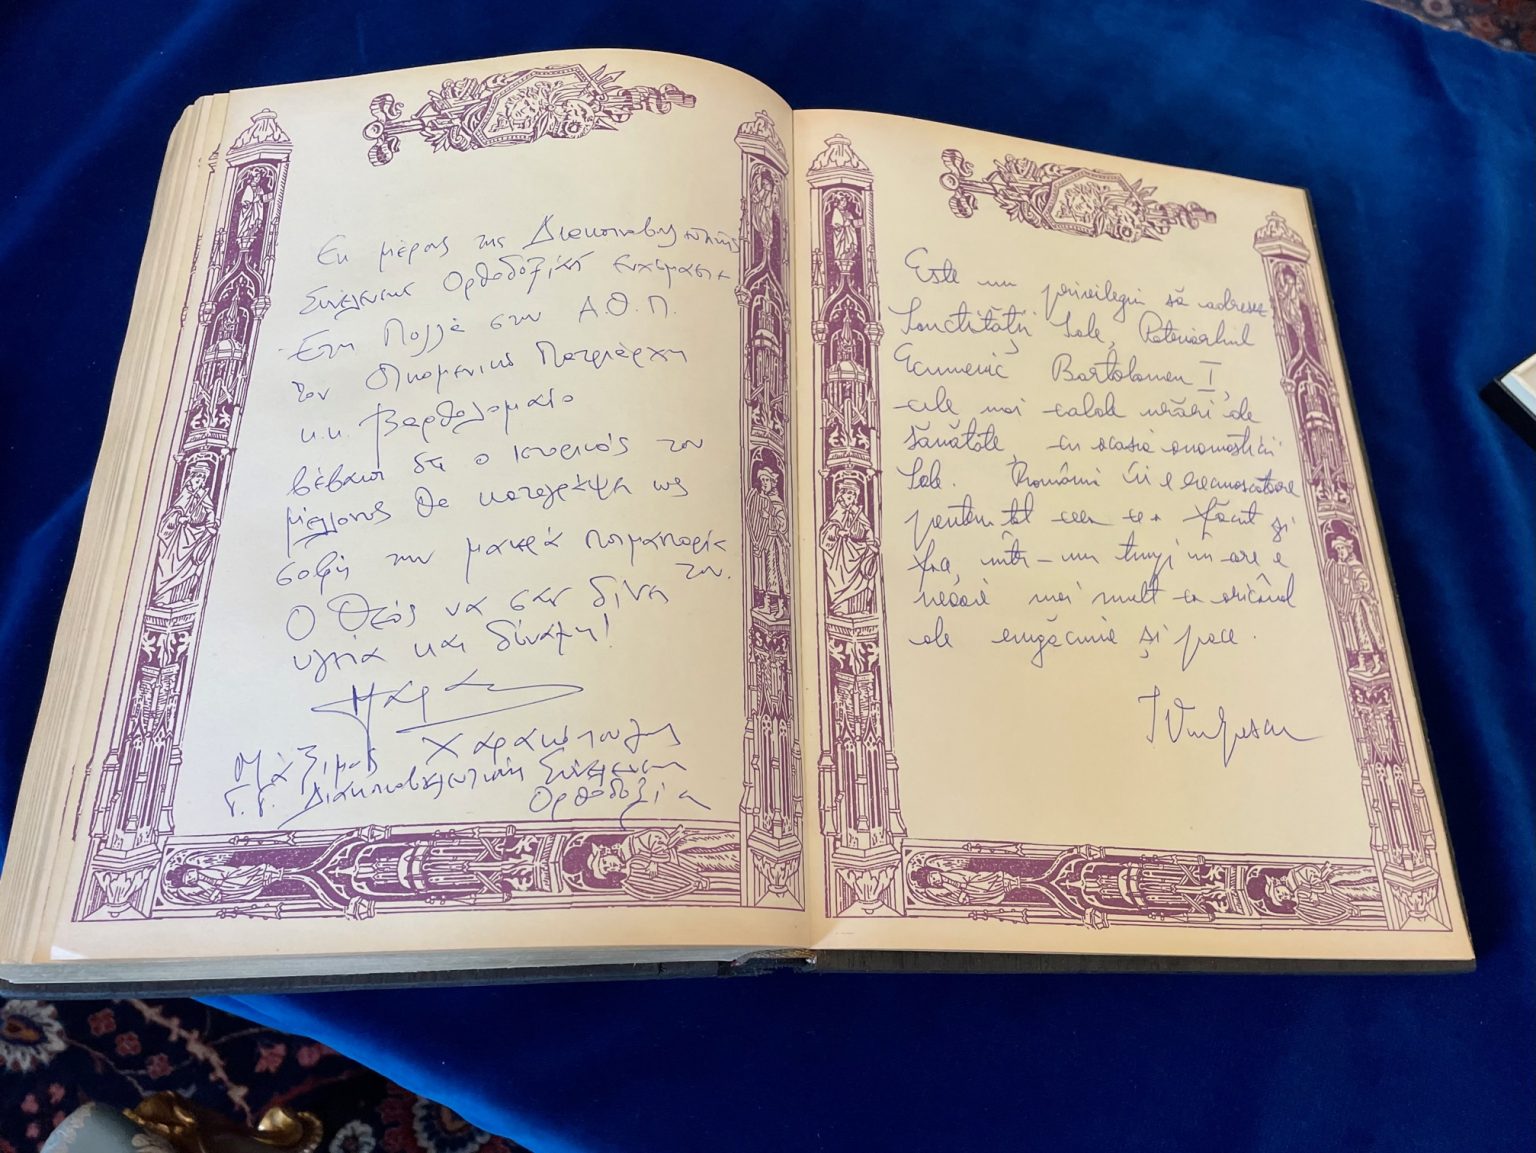 Εκ μέρους της Διακοινοβουλευτικής
Συνέλευσης Ορθοδοξίας ευχόμαστε
Έτη Πολλά στην Α.Θ.Π.
τον Οικουμενικό Πατριάρχη
κ.κ. Βαρθολομαίο
βέβαιοι ότι ο ιστορικός του
μέλλοντος θα καταγράψει ως
σοφή την μακρά ποιμαντορία
του.
Ο Θεός να σας δίνει
υγεία και δύναμη!
Μάξιμος Χαρακόπουλος
Γ.Γ. Διακοινοβουλευτικής Συνέλευσης
Ορθοδοξίας
Este un privilegiu să adresez
Sanctității Sale, Patriarhul
Ecumenic Bartolomeu I,
cele mai calde urări de
sănătate, cu ocazia onomasticii
Sale. România îi e recunoscătoare
pentru tot ceea ce a făcut și
face, într-un timp în care e
nevoie mai mult ca oricând
de rugăciune și pace.